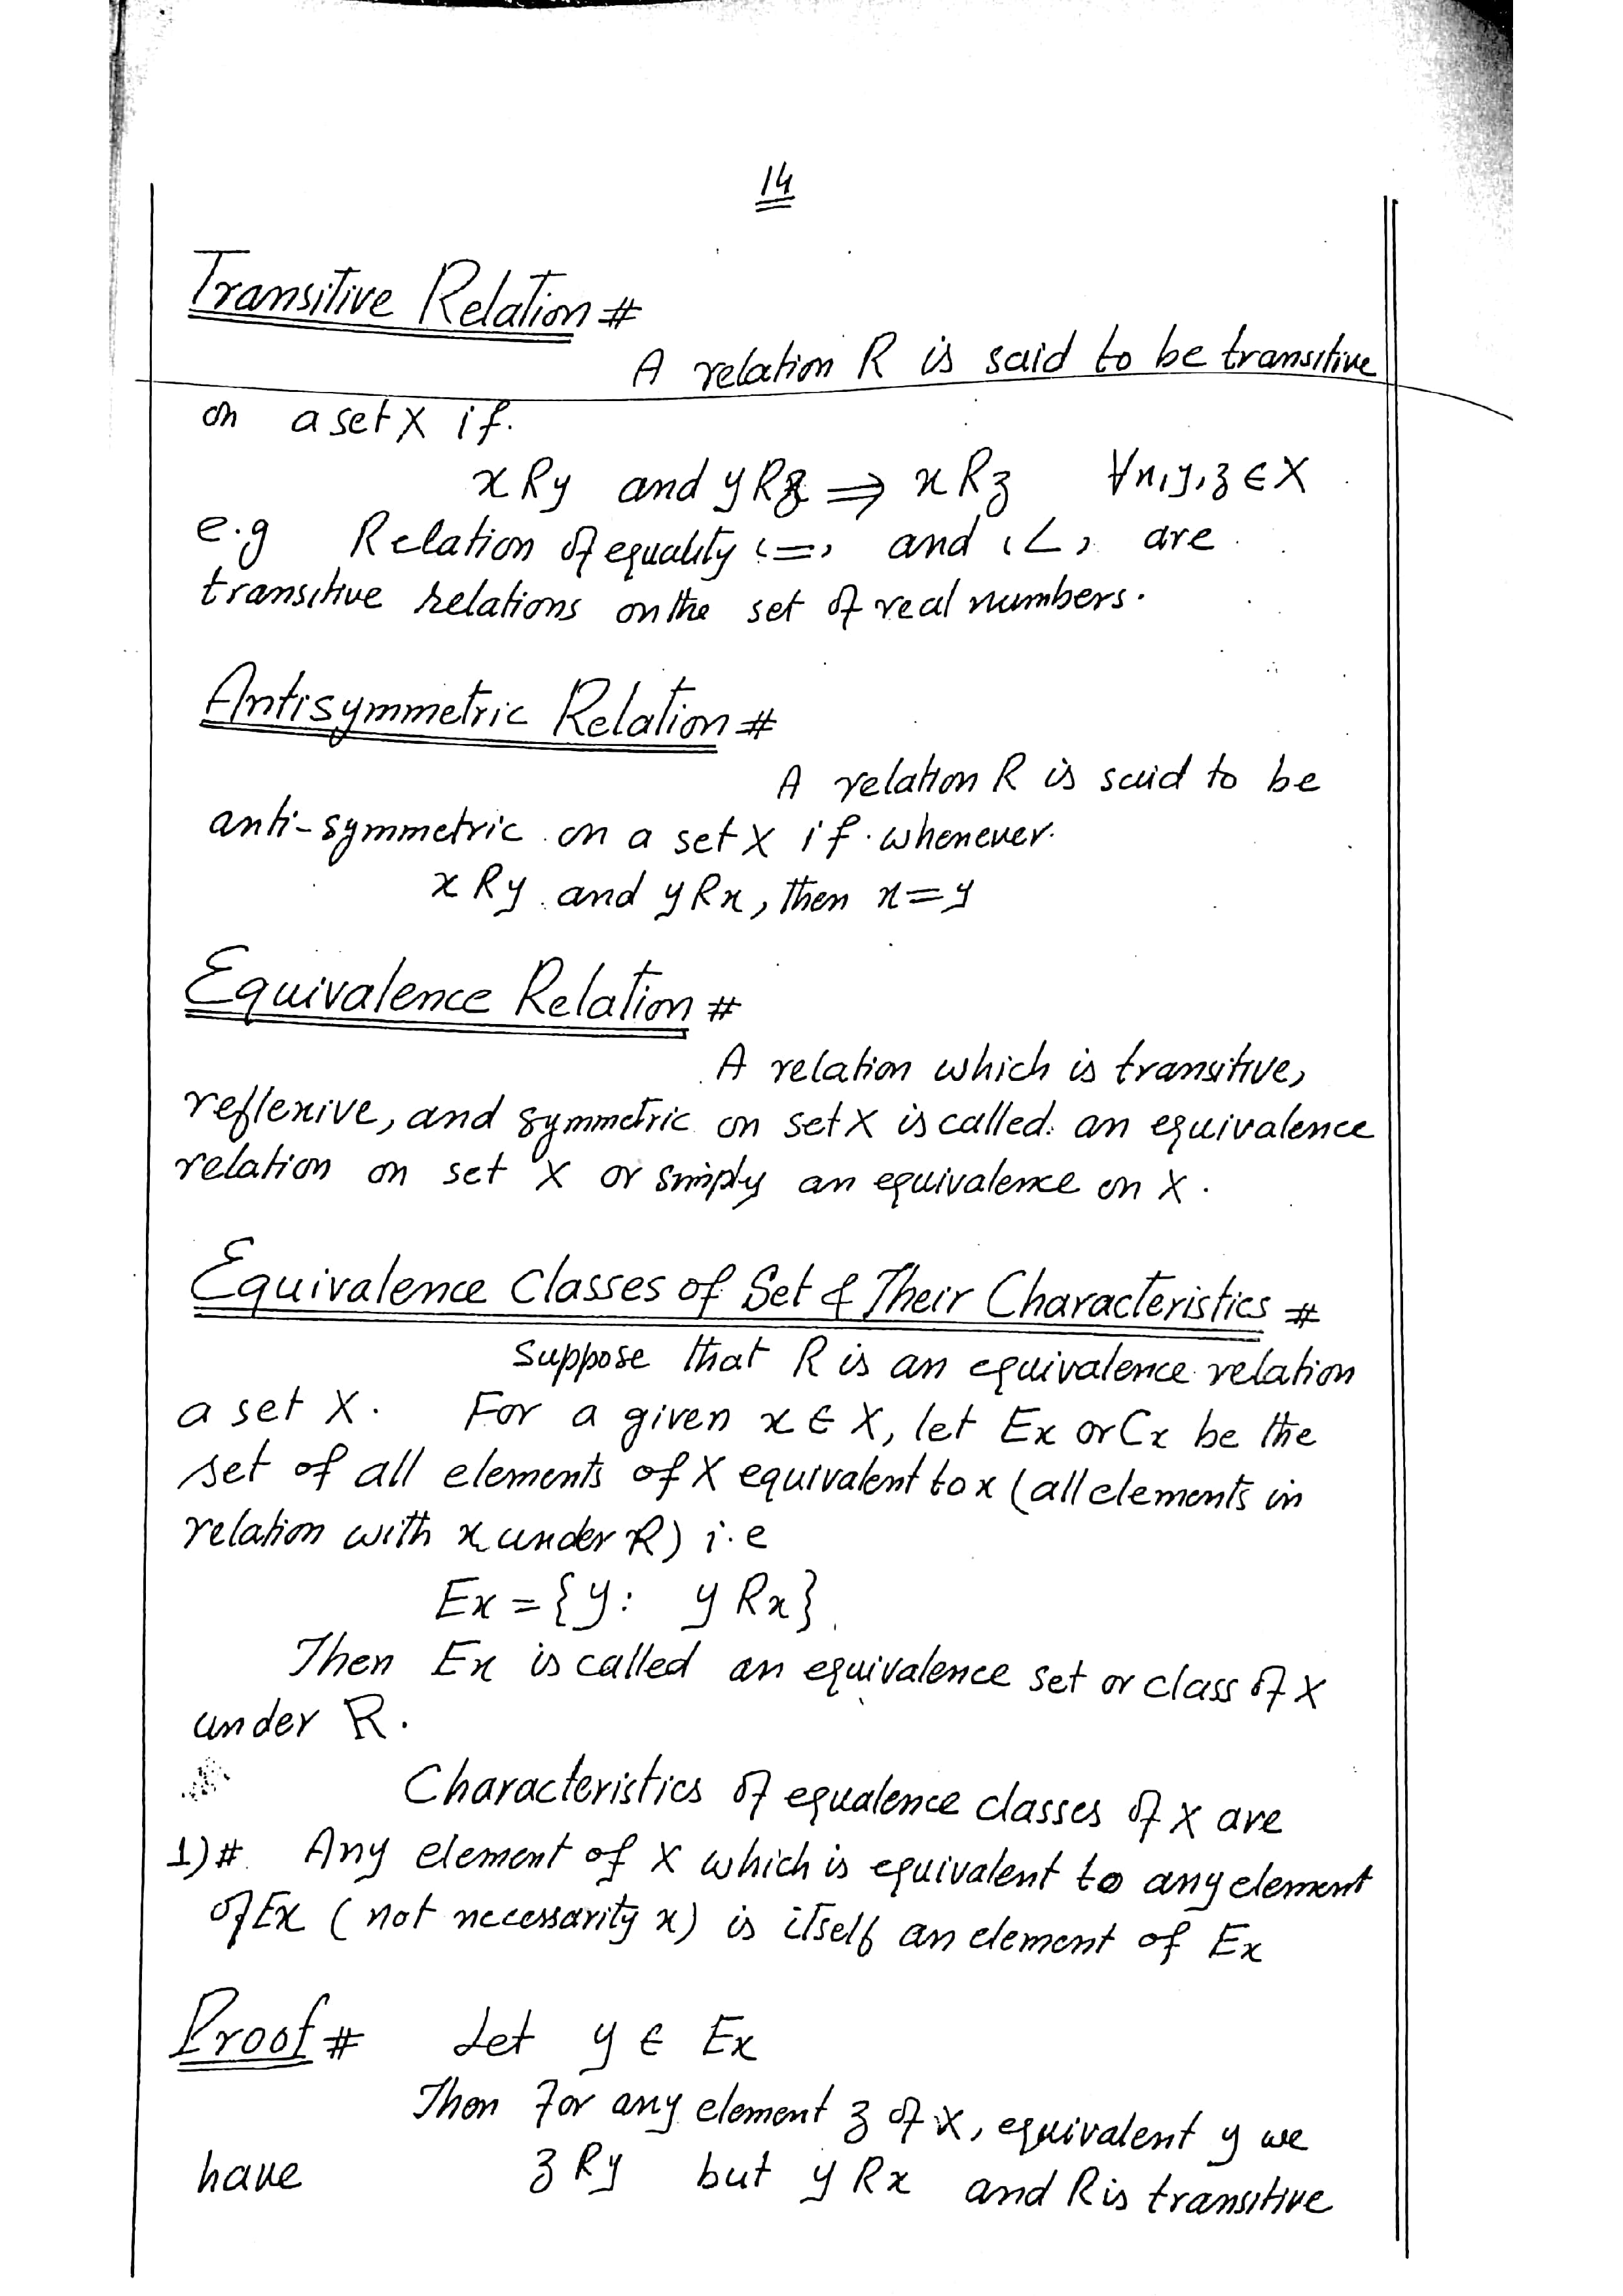 14
Transitive Relation #
A relation R is said to be transitive
on a set X if.
x Ry and y Rz ⇒ x Rz ∀x,y,z ∈ X
e.g Relation of equality '=' and '<' are
transitive relations on the set of real numbers.
Antisymmetric Relation #
A relation R is said to be
anti-symmetric on a set X if whenever.
x Ry and y Rx, then x=y
Equivalence Relation #
A relation which is transitive,
reflexive, and symmetric on set X is called. an equivalence
relation on set X or simply an equivalence on X.
Equivalence Classes of Set & Their Characteristics #
Suppose that R is an equivalence relation
a set X. For a given x ∈ X, let Ex or Cx be the
set of all elements of X equivalent to x (all elements in
relation with x under R) i.e
Ex = {y: y Rx}
Then Ex is called an equivalence set or class of X
under R.
Characteristics of equalence classes of X are
1) # Any element of X which is equivalent to any element
of Ex ( not necessarity x) is itself an element of Ex
Proof # Let y ∈ Ex
Then for any element z of X, equivalent y we
have z Ry but y Rx and R is transitive